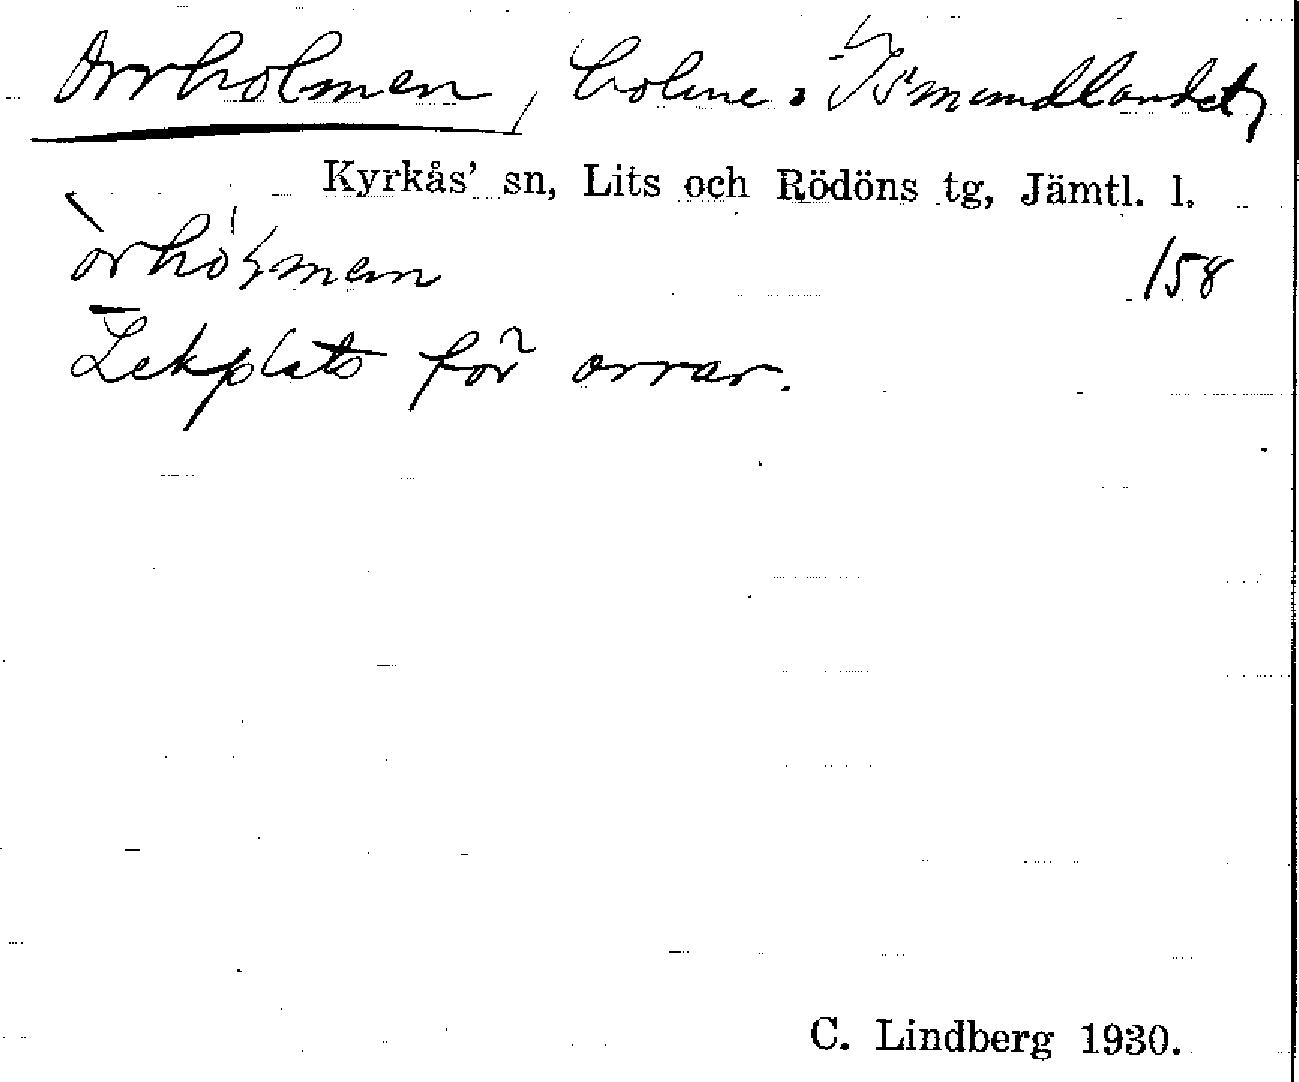 Orrholmen, holme i Ismundlandet,
Kyrkås' sn, Lits och Rödöns tg, Jämtl. l.
158
Lekplats för orrar.
C. Lindberg 1930.